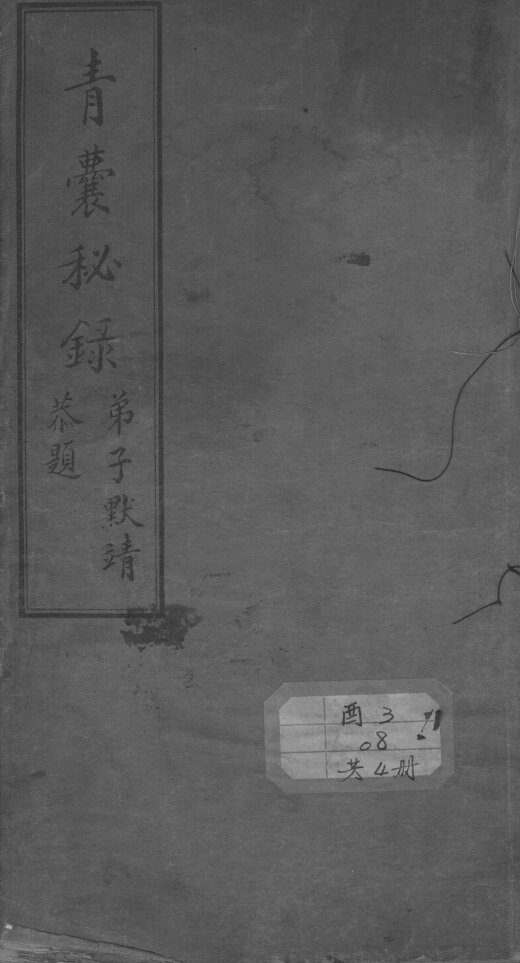 青囊秘錄
弟子默靖
恭題
酉 3
08
共4册